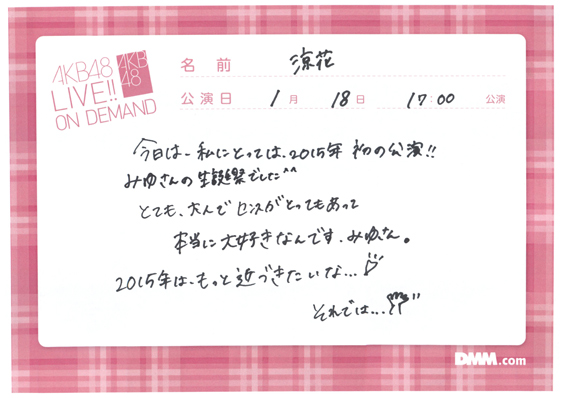 AKB48
LIVE!!
ON DEMAND
AKB
48
名前 涼花
公演日 1月 18日 17:00 公演
今日は、私にとっては、2015年 初の公演!!
みゆさんの生誕祭でした^^
とても、大人で センスがとってもあって
本当に大好きなんです、みゆさん。
2015年は、もっと近づきたいな...
それでは...
DMM.com